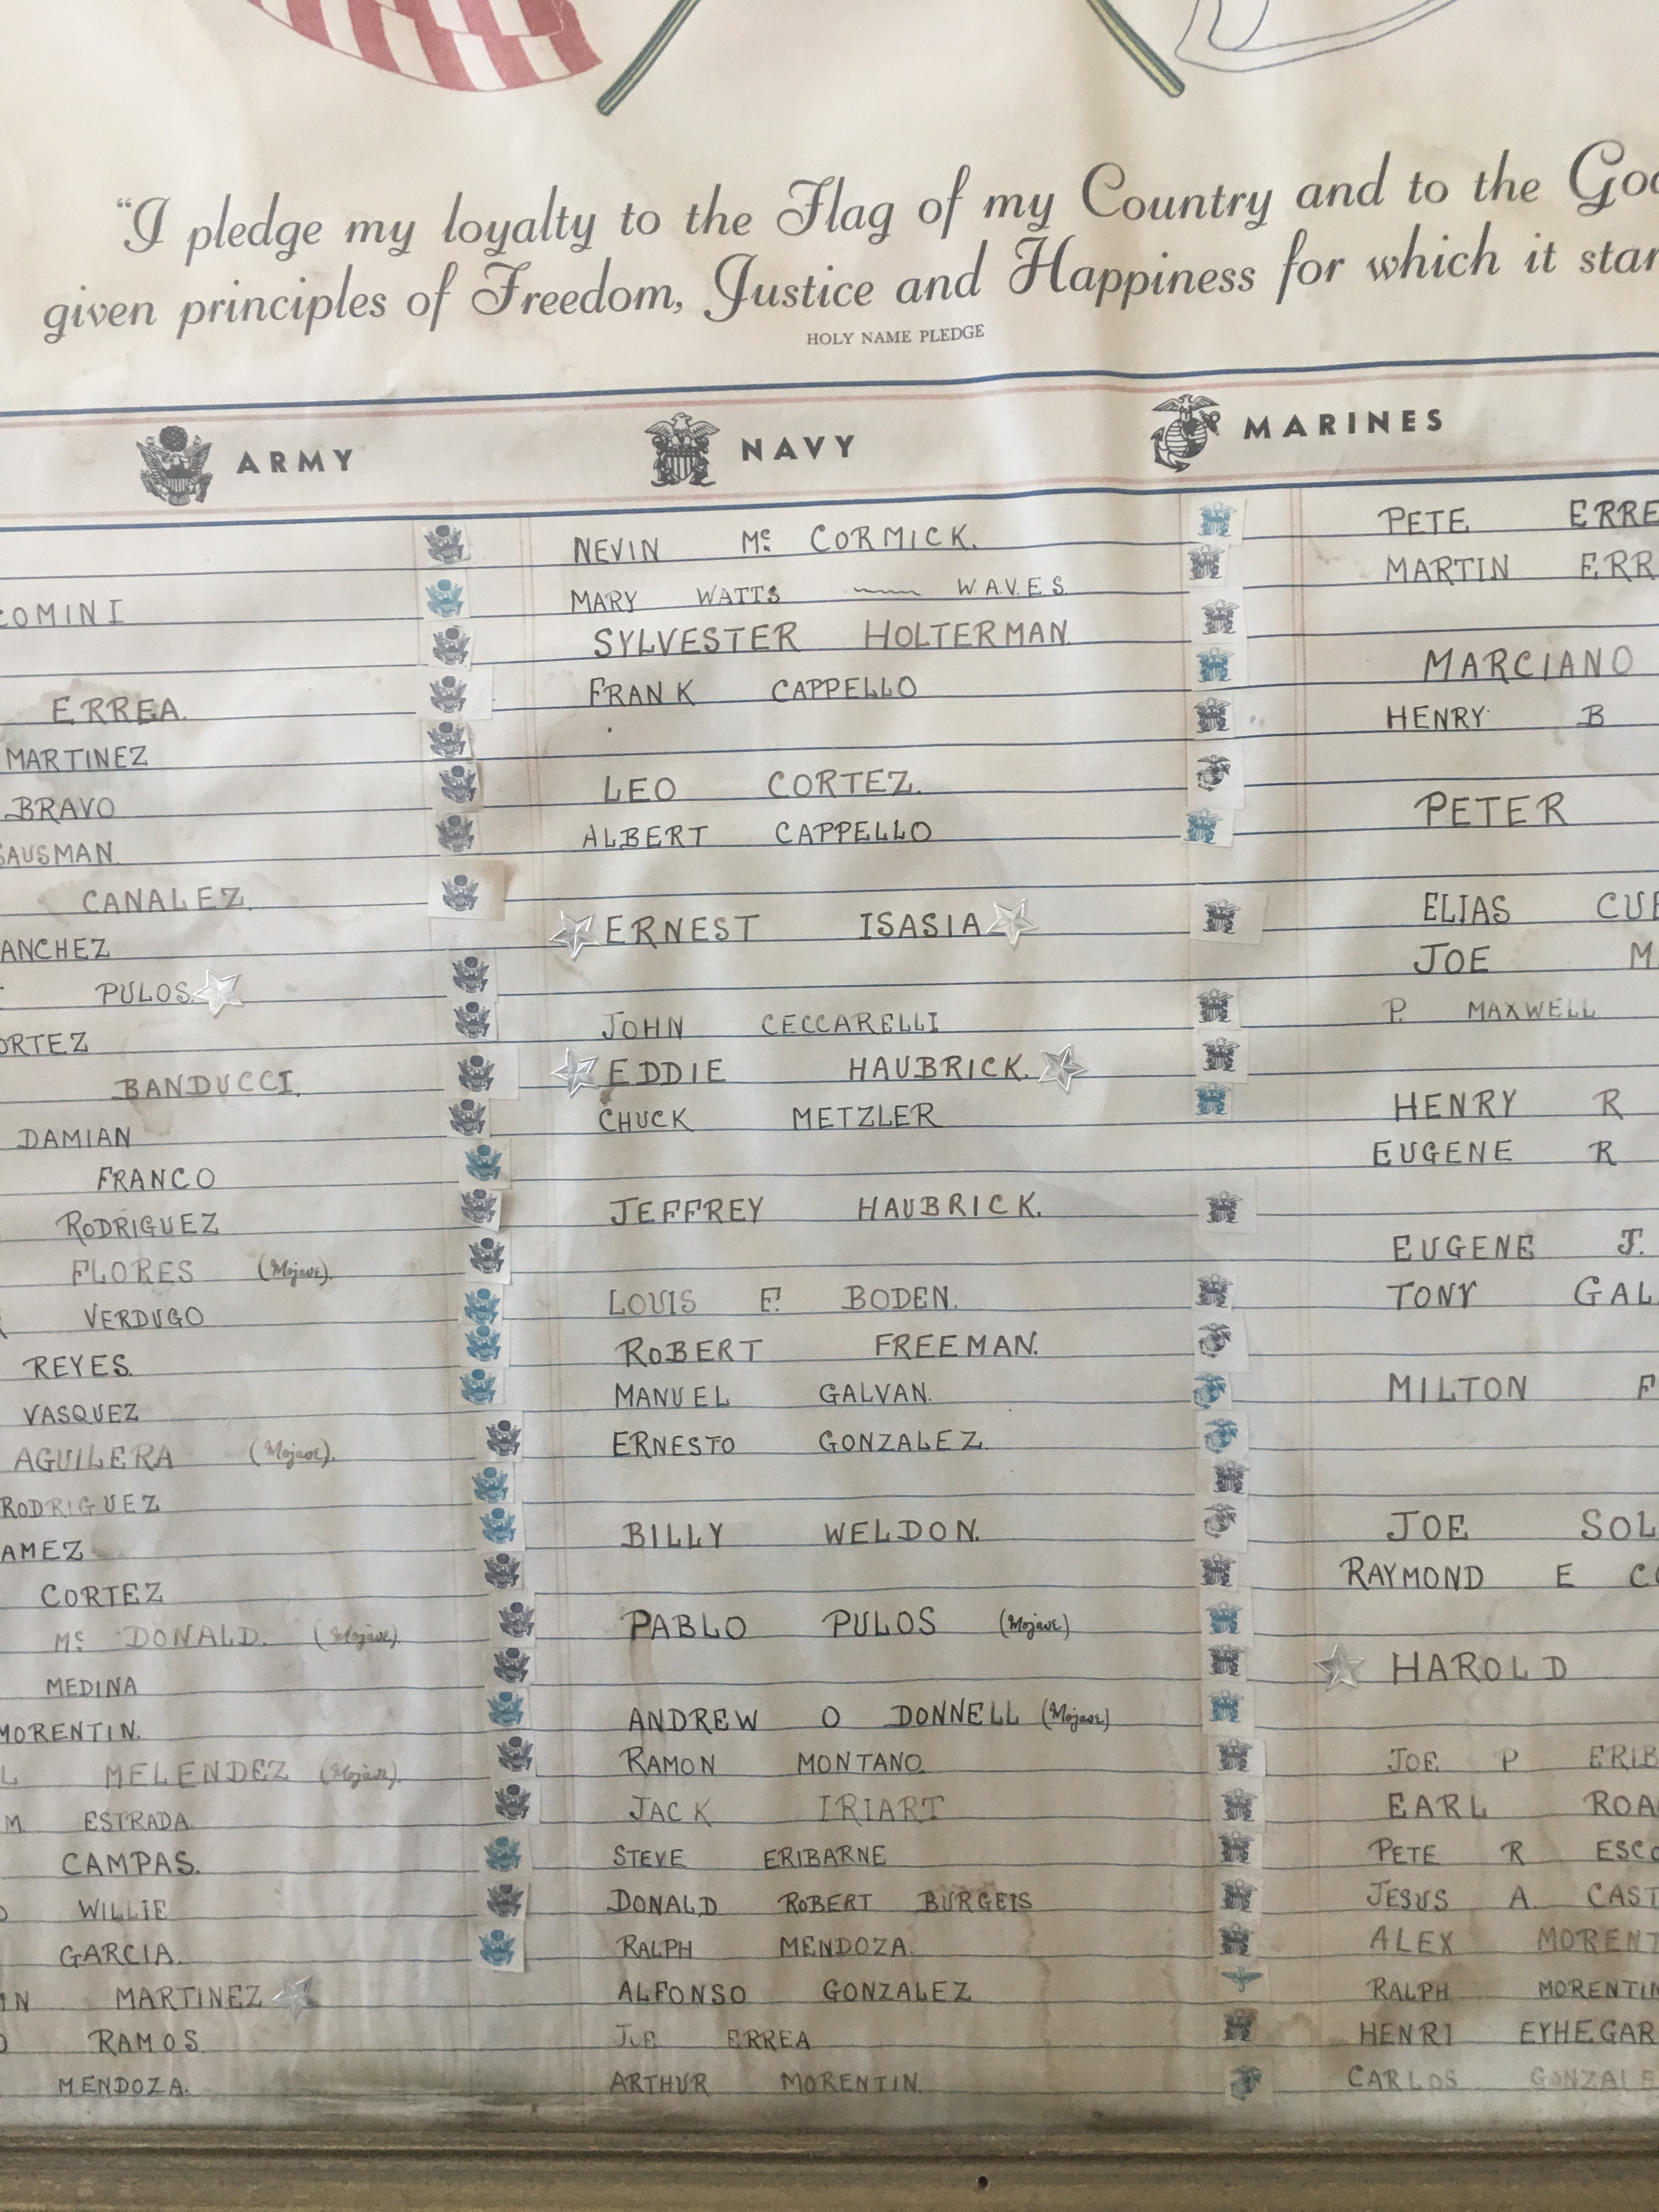 "I pledge my loyalty to the Flag of my Country and to the
given principles of Freedom, Justice and Happiness for which it
HOLY NAME PLEDGE
ARMY
NAVY
MARINES
COMINI
ERREA.
MARTINEZ
BRAVO
SAUSMAN.
CANALEZ.
ANCHEZ
PULOS
ORTEZ
BANDUCCI.
DAMIAN
FRANCO
RODRIGUEZ
FLORES (Mojave).
VERDUGO
REYES.
VASQUEZ
AGUILERA (Mojave).
RODRIGUEZ
AMEZ
CORTEZ
Mc DONALD. (Mojave).
MEDINA
MORENTIN.
L MELENDEZ (Mojave).
M. ESTRADA
CAMPAS.
WILLIE
GARCIA.
N MARTINEZ
RAMOS
MENDOZA.
NEVIN Mc CORMICK.
MARY WATTS W.A.V.E.S.
SYLVESTER HOLTERMAN.
FRANK CAPPELLO
LEO CORTEZ.
ALBERT CAPPELLO
ERNEST ISASIA
JOHN CECCARELLI
EDDIE HAUBRICK.
CHUCK METZLER
JEFFREY HAUBRICK.
LOUIS F. BODEN.
ROBERT FREEMAN.
MANUEL GALVAN.
ERNESTO GONZALEZ.
BILLY WELDON.
PABLO PULOS (Mojave)
ANDREW O DONNELL (Mojave)
RAMON MONTANO.
JACK IRIART
STEVE ERIBARNE
DONALD ROBERT BURGEIS
RALPH MENDOZA.
ALFONSO GONZALEZ
JOE ERREA
ARTHUR MORENTIN.
PETE ERRE
MARTIN ERR
MARCIANO
HENRY B
PETER
ELIAS CUE
JOE M
P. MAXWELL
HENRY R
EUGENE R
EUGENE J.
TONY GAL
MILTON F
JOE SOL
RAYMOND E CO
HAROLD
JOE P ERIB
EARL ROA
PETE R ESCO
JESUS A. CAST
ALEX MORENT
RALPH MORENTIN
HENRI EYHEGAR
CARLOS GONZALE